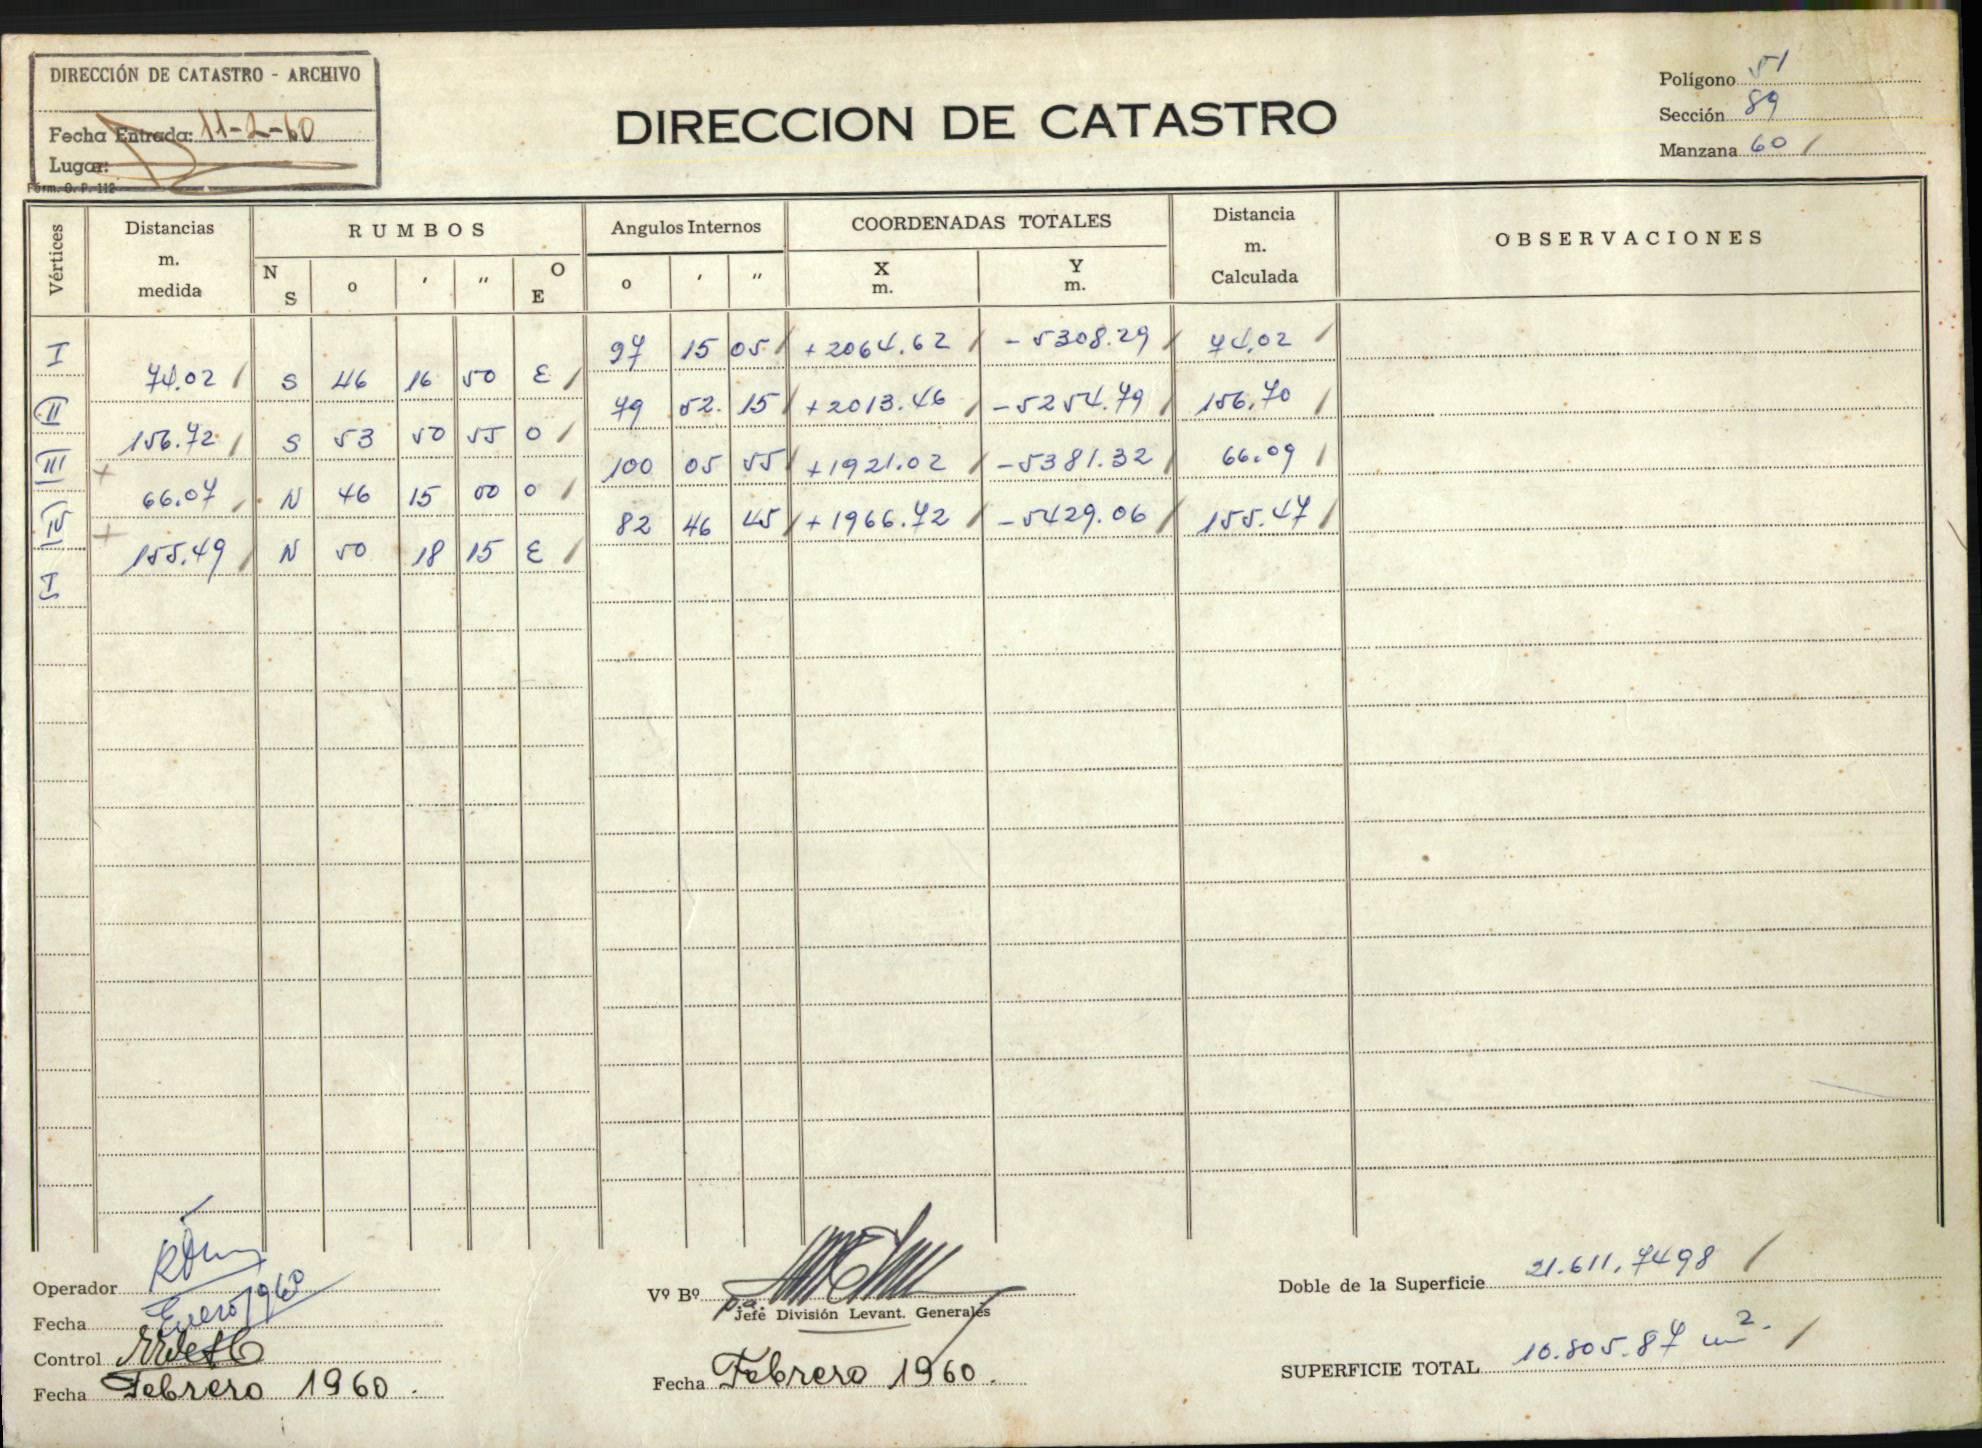 DIRECCIÓN DE CATASTRO - ARCHIVO
Fecha Entrada: 11-2-60
Lugar:
Form. O. P. 112
DIRECCION DE CATASTRO
Polígono 51
Sección 89
Manzana 60 /
Vértices
Distancias m. medida
RUMBOS
N S o ' " O E
Angulos Internos
o ' "
COORDENADAS TOTALES
X m. Y m.
Distancia m. Calculada
OBSERVACIONES
I 97 15 05 / +2064.62 / -5308.29 / 74.02 /
74.02 / S 46 16 50 E /
II 79 52. 15 / +2013.46 / -5254.79 / 156.70 /
156.72 / S 53 50 55 O /
III 100 05 55 / +1921.02 / -5381.32 66.09 /
+
66.07 / N 46 15 00 O /
IV 82 46 45 / +1966.72 / -5429.06 / 155.47 /
+
155.49 / N 50 18 15 E /
I
Operador
Fecha Enero/1960
Control
Fecha Febrero 1960.
Vº Bº
p.a.
Jefe División Levant. Generales
Fecha Febrero 1960.
Doble de la Superficie 21.611,7498 /
SUPERFICIE TOTAL 10.805.87 m². /